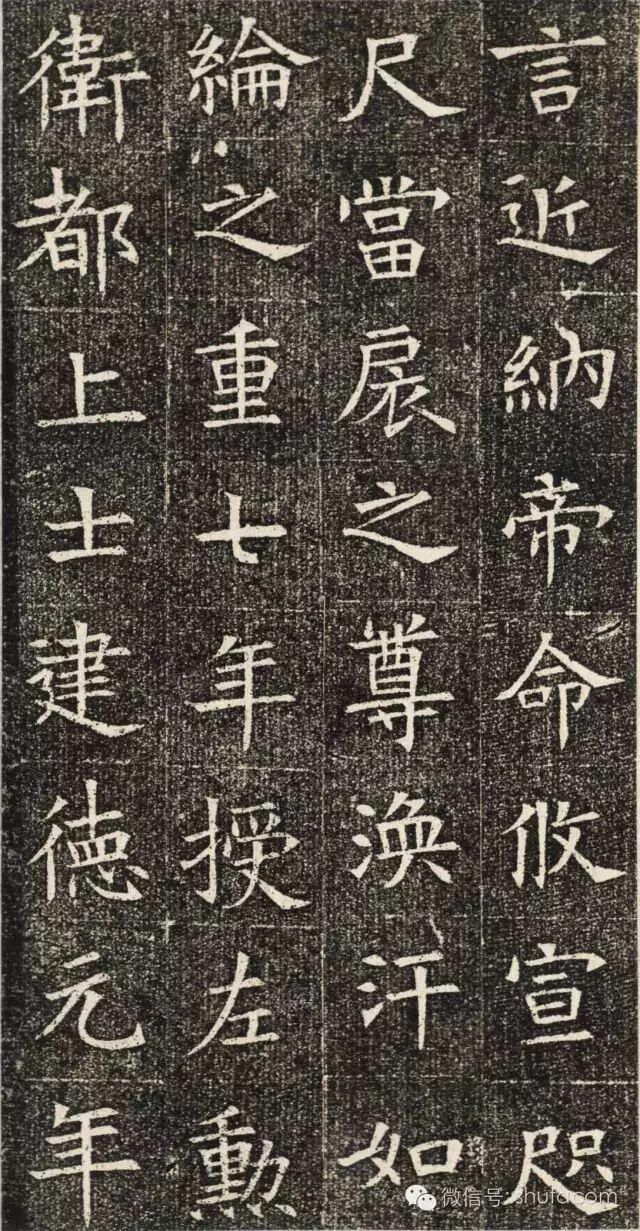 言近納帝命攸宣咫
尺當扆之尊渙汗如
綸之重七年授左勲
衛都上士建徳元年
微信号: shufacom